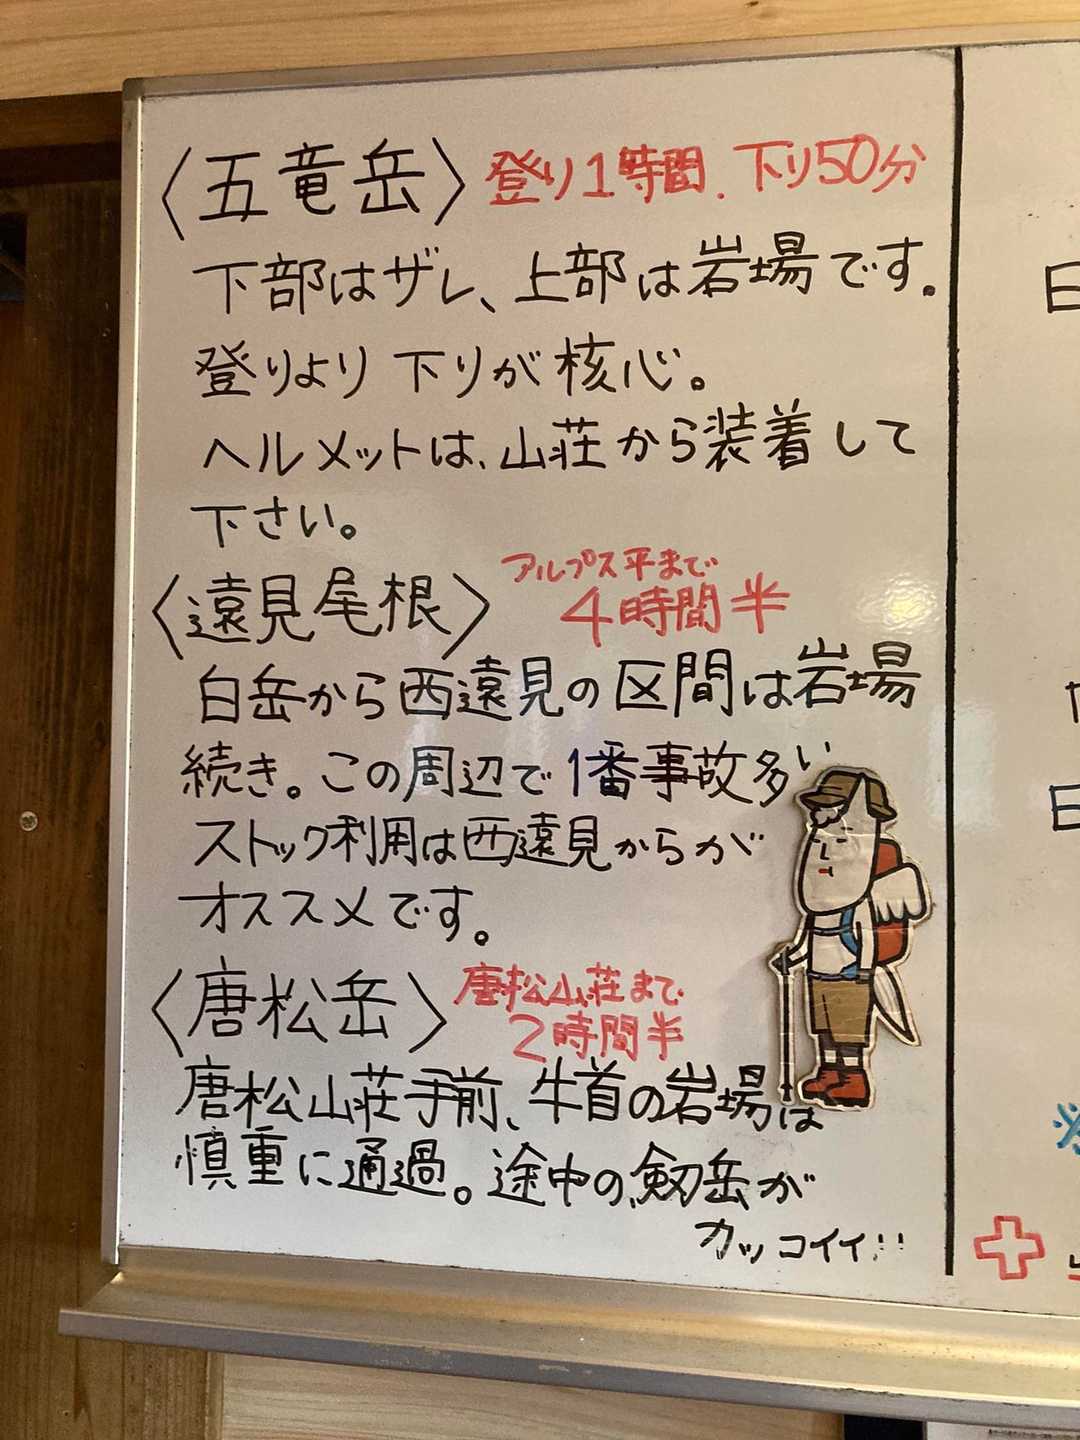 〈五竜岳〉 登り1時間、下り50分
下部はザレ、上部は岩場です。
登りより下りが核心。
ヘルメットは、山荘から装着して
下さい。
アルプス平まで
〈遠見尾根〉 4時間半
白岳から西遠見の区間は岩場
続き。この周辺で1番事故多い
ストック利用は西遠見からが
オススメです。
〈唐松岳〉 唐松山荘まで
2時間半
唐松山荘手前、牛首の岩場は
慎重に通過。途中の剱岳が
カッコイイ!!